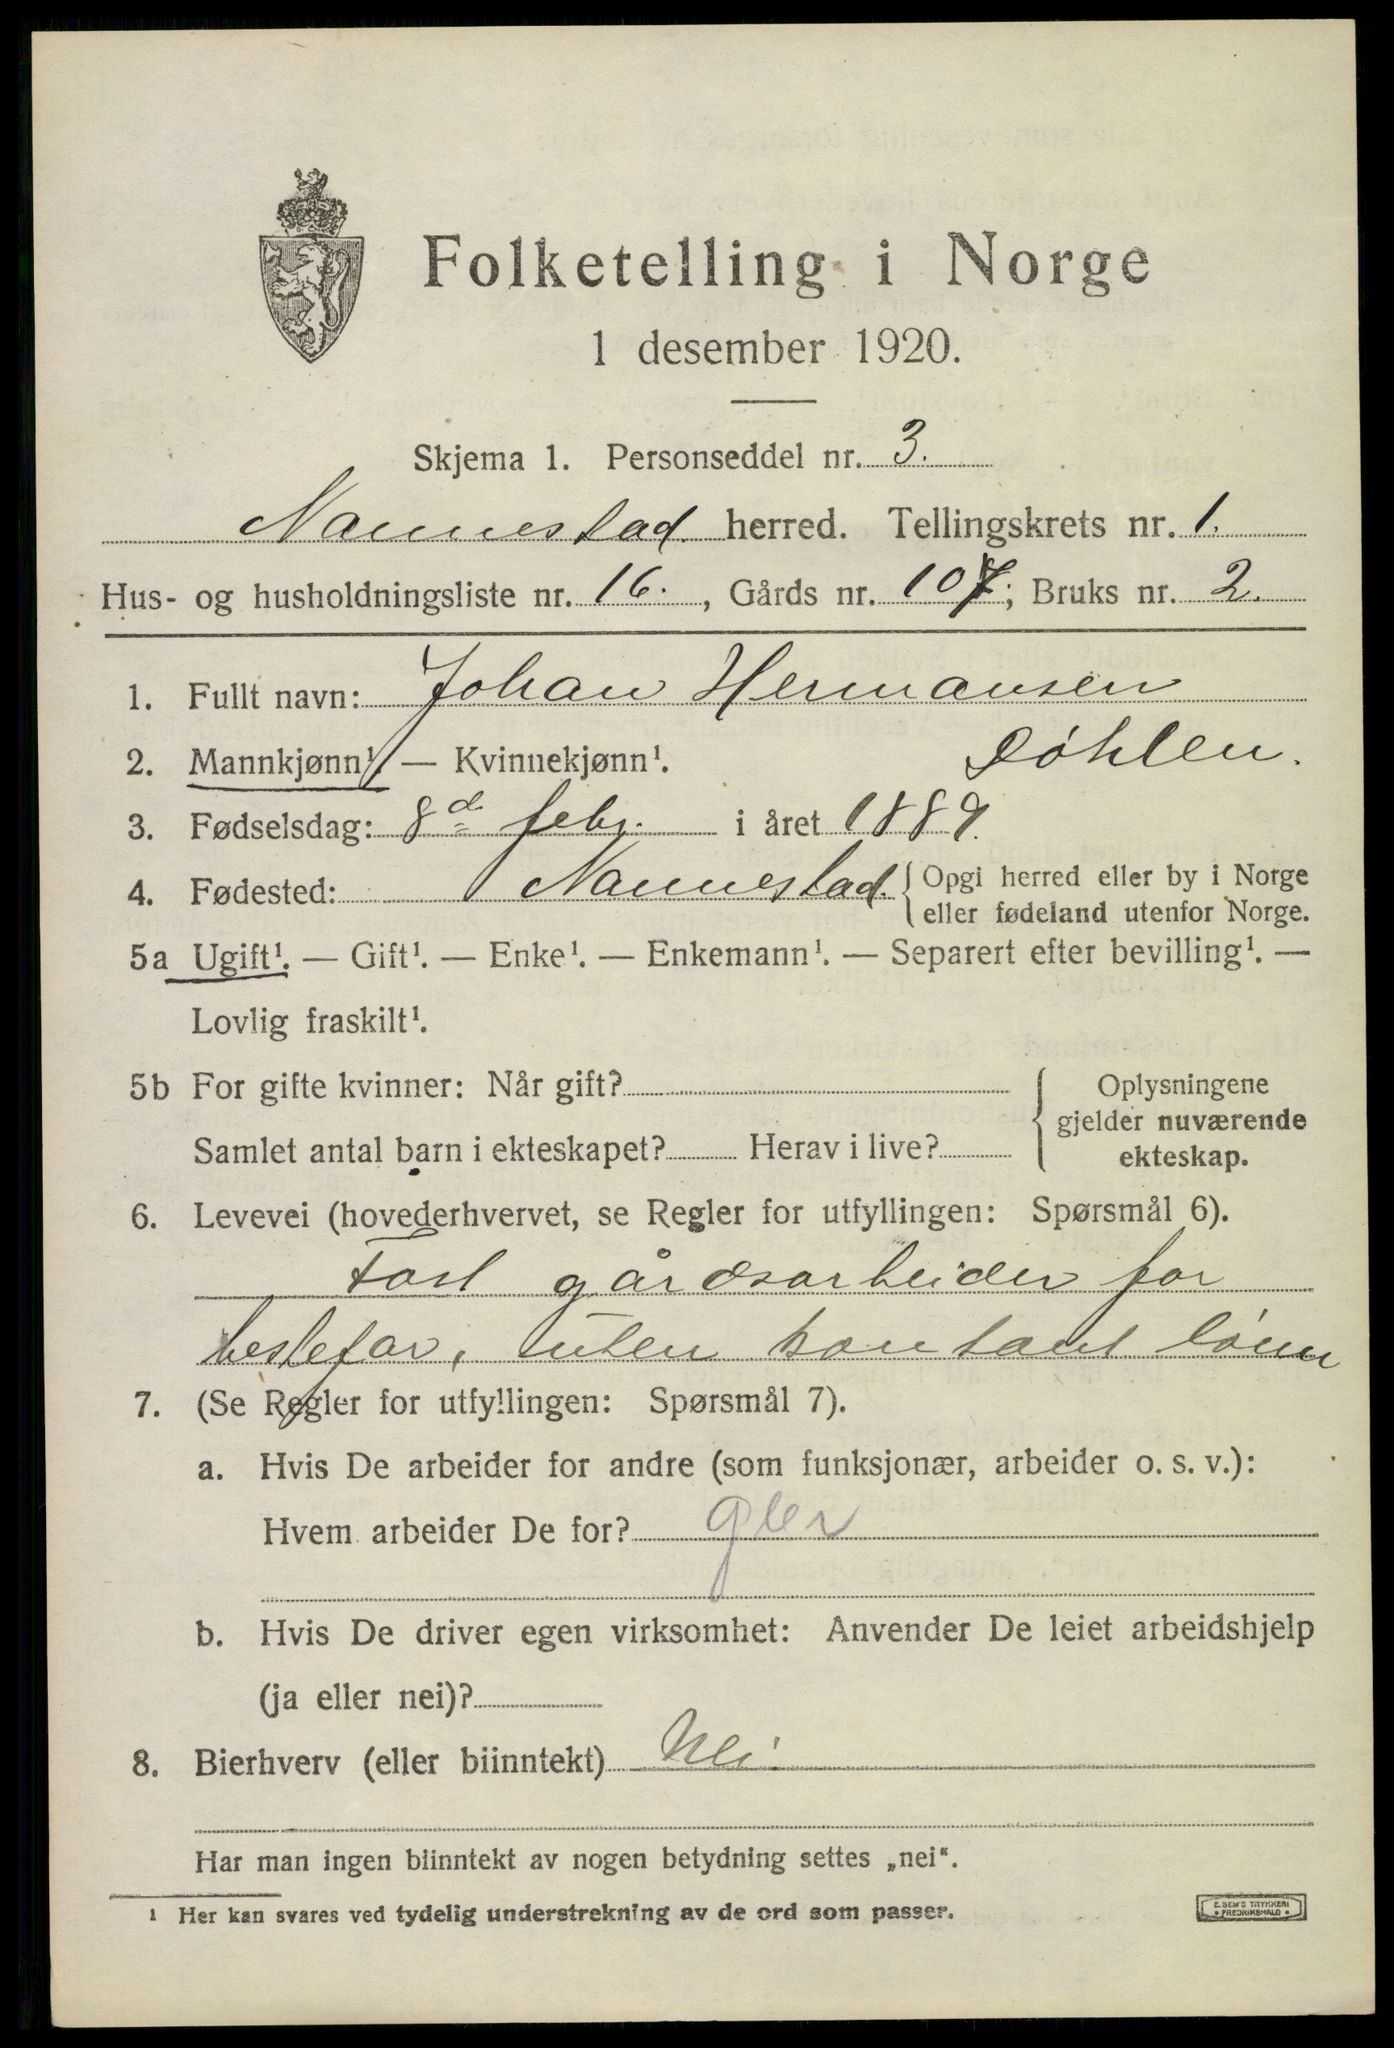 Folketelling i Norge
1 desember 1920.
Skjema 1. Personseddel nr. 3.
Nannestad. herred. Tellingskrets nr. 1.
Hus- og husholdningsliste nr. 16. , Gårds nr. 107; Bruks nr. 2.
1. Fullt navn: Johan Hermansen
Døhlen.
2. Mannkjønn¹. — Kvinnekjønn¹.
3. Fødselsdag: 8de febr. i året 1889.
4. Fødested: Nannestad. { Opgi herred eller by i Norge
eller fødeland utenfor Norge.
5a Ugift¹. — Gift¹. — Enke¹. — Enkemann¹. — Separert efter bevilling¹. —
Lovlig fraskilt¹.
5b For gifte kvinner: Når gift? { Oplysningene
gjelder nuværende
Samlet antal barn i ekteskapet? Herav i live? ekteskap.
6. Levevei (hovederhvervet, se Regler for utfyllingen: Spørsmål 6).
Fast gårdsarbeider for
bestefar, uten kontant lønn
7. (Se Regler for utfyllingen: Spørsmål 7).
a. Hvis De arbeider for andre (som funksjonær, arbeider o. s. v.):
Hvem arbeider De for?
b. Hvis De driver egen virksomhet: Anvender De leiet arbeidshjelp
(ja eller nei)?
8. Bierhverv (eller biinntekt) Nei
Har man ingen biinntekt av nogen betydning settes „nei“.
¹ Her kan svares ved tydelig understrekning av de ord som passer.
E. SEM'S TRYKKERI
• FREDRIKSHALD •